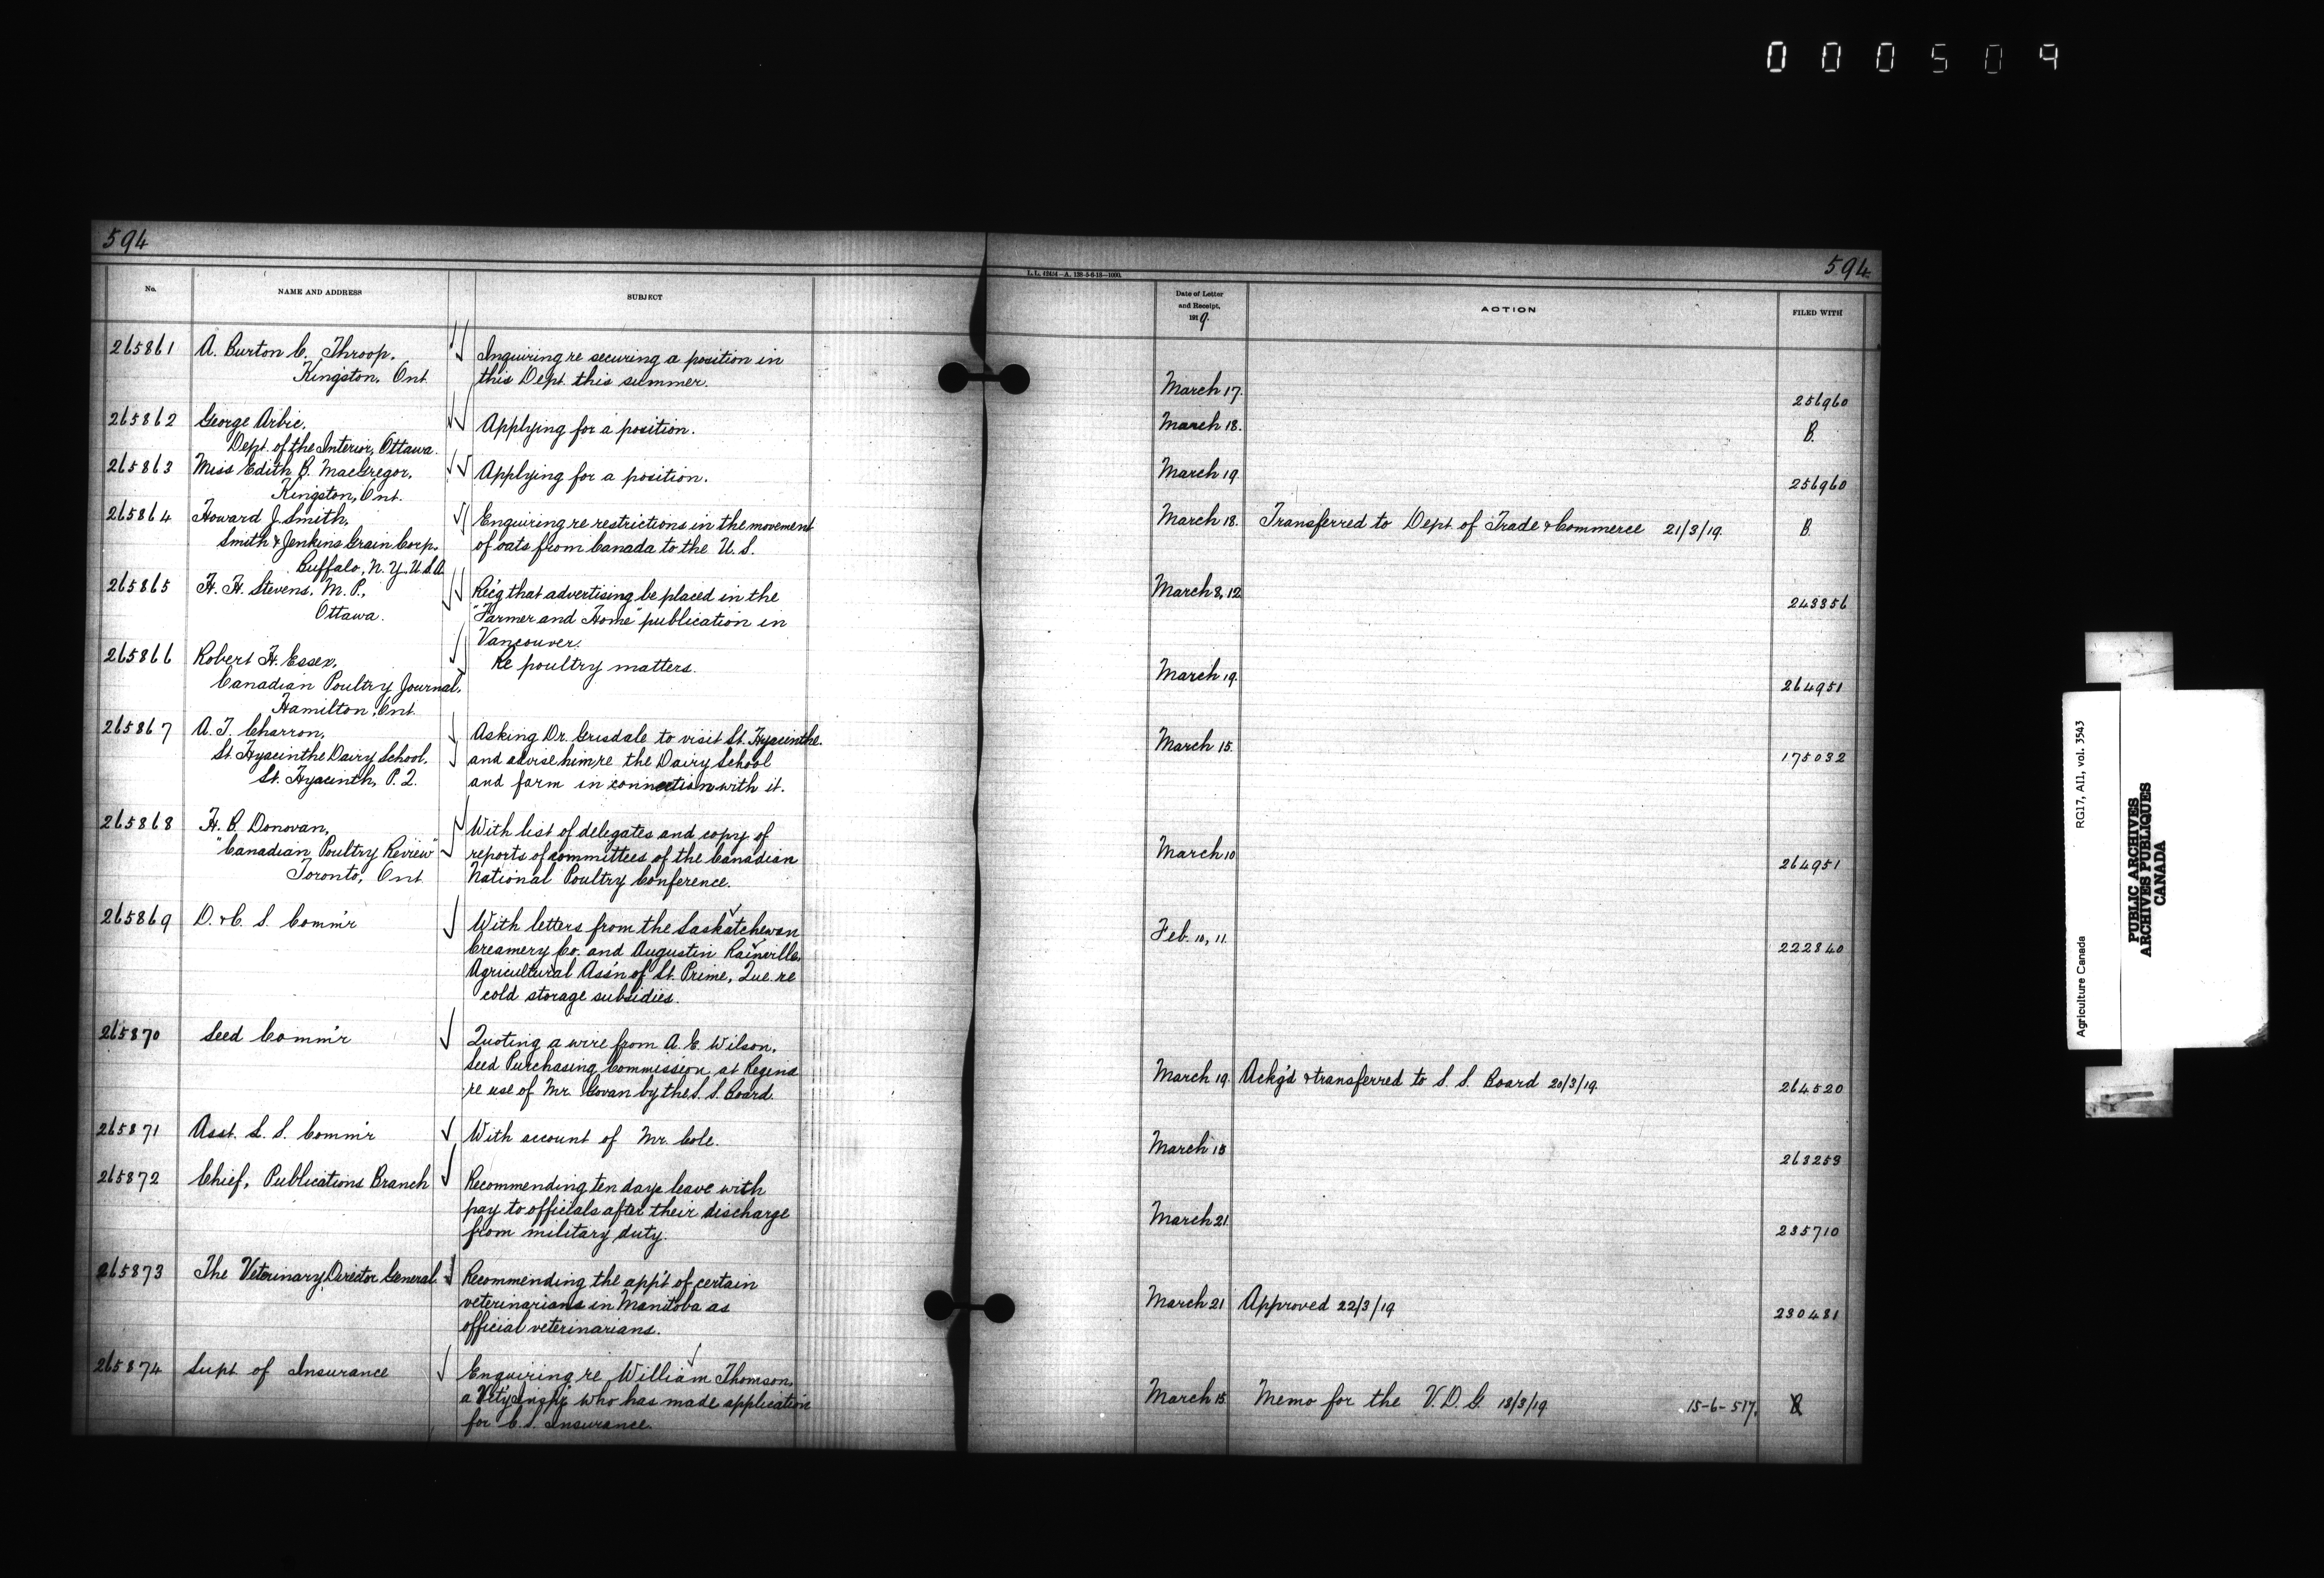 000509
594
594
L.L. 62414—A. 128-5-6-18—1000.
No.
NAME AND ADDRESS
SUBJECT
Date of Letter
and Receipt,
1919.
ACTION
FILED WITH
265861 A. Burton C. Throop, Inquiring re securing a position in
Kingston, Ont. this Dept. this summer. March 17. 256960
265862 George Arbic, Applying for a position. March 18. B.
Dept. of the Interior, Ottawa.
265863 Miss Edith B. MacGregor, Applying for a position. March 19. 256960
Kingston, Ont.
265864 Howard J. Smith, Enquiring re restrictions in the movement March 18. Transferred to Dept. of Trade & Commerce 21/3/19. B.
Smith & Jenkins Grain Corp. of oats from Canada to the U.S.
Buffalo, N.Y. U.S.A.
265865 H. H. Stevens, M.P., Req'g that advertising be placed in the March 8, 12 243356
Ottawa. "Farmer and Home" publication in
Vancouver.
265866 Robert H. Essex, Re poultry matters. March 19. 264951
Canadian Poultry Journal,
Hamilton, Ont.
265867 A. T. Charron, Asking Dr. Grisdale to visit St. Hyacinthe March 15. 175032
St. Hyacinthe Dairy School, and advise him re the Dairy School
St. Hyacinth, P.Q. and farm in connection with it.
265868 H. B. Donovan, With list of delegates and copy of
"Canadian Poultry Review" reports of committees of the Canadian March 10 264951
Toronto, Ont. National Poultry Conference.
265869 D. & C. S. Comm'r With letters from the Saskatchewan Feb. 10, 11. 222840
Creamery Co. and Augustin Rainville,
Agricultural Ass'n of St. Prime, Que. re
cold storage subsidies.
265870 Seed Comm'r Quoting a wire from A. E. Wilson,
Seed Purchasing Commission at Regina March 19. Ackg'd & transferred to S. S. Board 20/3/19. 264520
re use of Mr. Cowan by the S. S. Board.
265871 Asst. L. S. Comm'r With account of Mr. Cole. March 15 263253
265872 Chief, Publications Branch Recommending ten days leave with
pay to officials after their discharge March 21. 235710
from military duty.
265873 The Veterinary Director General Recommending the app't of certain
veterinarians in Manitoba as March 21 Approved 22/3/19 230481
official veterinarians.
265874 Supt. of Insurance Enquiring re William Thomson,
a Vet'y Insp'r who has made application March 15. Memo for the V.D.G. 18/3/19 15-6-517. B
for C.S. Insurance.
Agriculture Canada RG17, AII, vol. 3543
PUBLIC ARCHIVES
ARCHIVES PUBLIQUES
CANADA